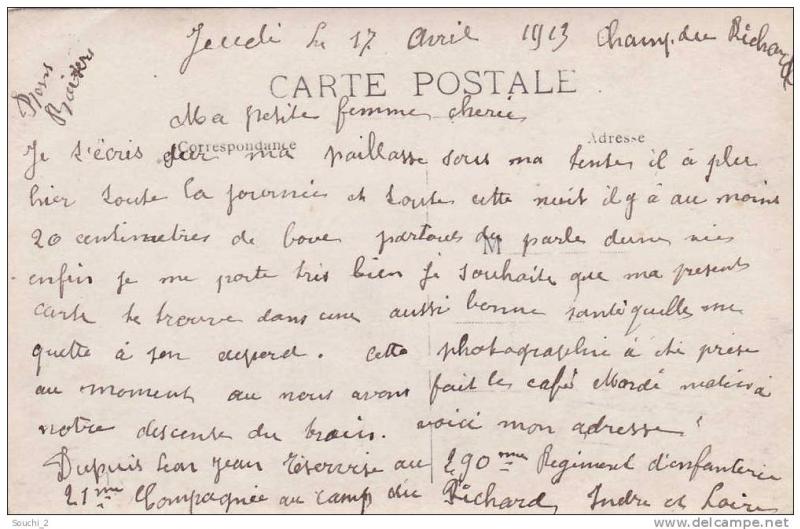 Jeudi le 17 Avril 1913 Champ du Richard
Bons
Baisers
CARTE POSTALE
Ma petite femme cherie
Correspondance
Adresse
Je t'écris sur ma paillasse sous ma tente il à plu
hier toute la journée et toute cette nuit il y à au moins
20 centimetres de boue partout tu parle dune vie
M
enfin je me porte tres bien je souhaite que ma present
carte te trouve dans une aussi bonne santé quelle me
quette à son depard. cette photographie à été prise
au moment ou nous avons fait le café Mardi matin à
notre descente du train. voici mon adresse
Dupuis Jean Reserviste au 290me Regiment d'enfanterie
21me Compagnie au camp du Richard Indre et Loire
Souchi_2
www.delcampe.net